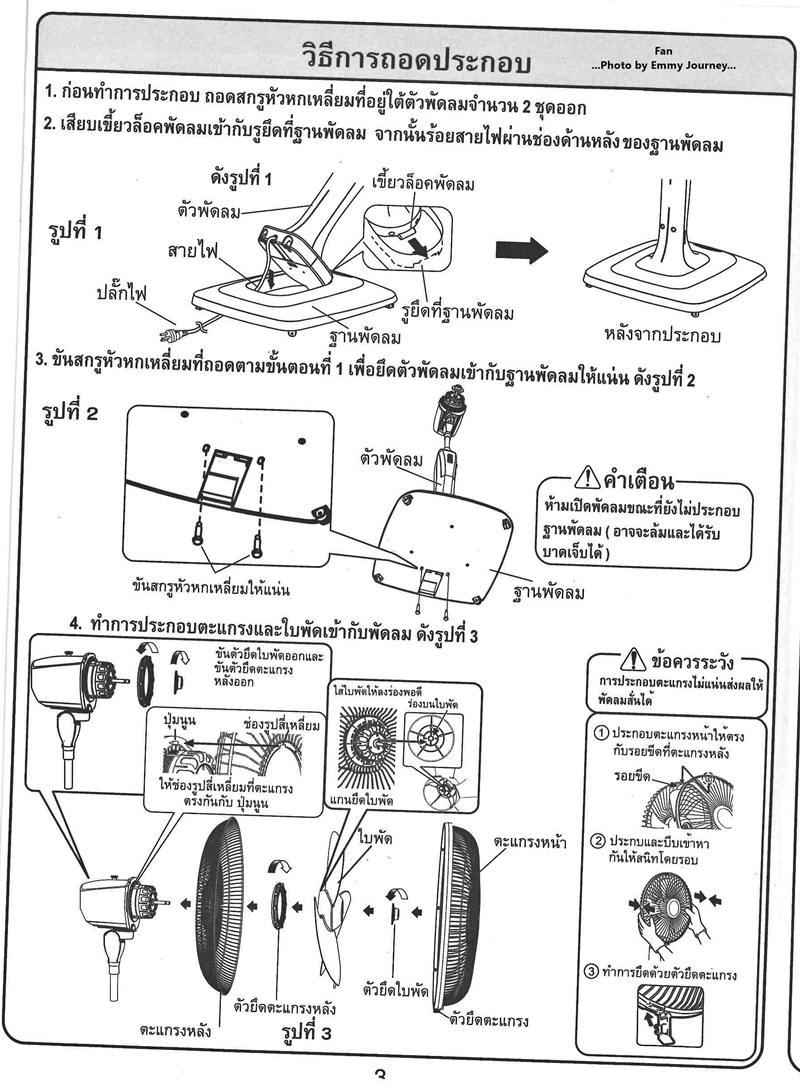 วิธีการถอดประกอบ
Fan
...Photo by Emmy Journey...
1. ก่อนทำการประกอบ ถอดสกรูหัวหกเหลี่ยมที่อยู่ใต้ตัวพัดลมจำนวน 2 ชุดออก
2. เสียบเขี้ยวล็อคพัดลมเข้ากับรูยึดที่ฐานพัดลม จากนั้นร้อยสายไฟผ่านช่องด้านหลังของฐานพัดลม
ดังรูปที่ 1
เขี้ยวล็อคพัดลม
ตัวพัดลม
รูปที่ 1
สายไฟ
ปลั๊กไฟ
รูยึดที่ฐานพัดลม
ฐานพัดลม
หลังจากประกอบ
3. ขันสกรูหัวหกเหลี่ยมที่ถอดตามขั้นตอนที่ 1 เพื่อยึดตัวพัดลมเข้ากับฐานพัดลมให้แน่น ดังรูปที่ 2
รูปที่ 2
ตัวพัดลม
คำเตือน
ห้ามเปิดพัดลมขณะที่ยังไม่ประกอบ
ฐานพัดลม ( อาจจะล้มและได้รับ
บาดเจ็บได้ )
ขันสกรูหัวหกเหลี่ยมให้แน่น
ฐานพัดลม
4. ทำการประกอบตะแกรงและใบพัดเข้ากับพัดลม ดังรูปที่ 3
ขันตัวยึดใบพัดออกและ
ขันตัวยึดตะแกรง
หลังออก
ใส่ใบพัดให้ลงร่องพอดี
ร่องบนใบพัด
แกนยึดใบพัด
ปุ่มนูน
ช่องรูปสี่เหลี่ยม
ให้ช่องรูปสี่เหลี่ยมที่ตะแกรง
ตรงกันกับ ปุ่มนูน
ใบพัด
ตะแกรงหน้า
ตัวยึดใบพัด
ตัวยึดตะแกรงหลัง
ตัวยึดตะแกรง
ตะแกรงหลัง
รูปที่ 3
ข้อควรระวัง
การประกอบตะแกรงไม่แน่นส่งผลให้
พัดลมสั่นได้
1 ประกอบตะแกรงหน้าให้ตรง
กับรอยขีดที่ตะแกรงหลัง
รอยขีด
2 ประกบและบีบเข้าหา
กันให้สนิทโดยรอบ
3 ทำการยึดด้วยตัวยึดตะแกรง
3